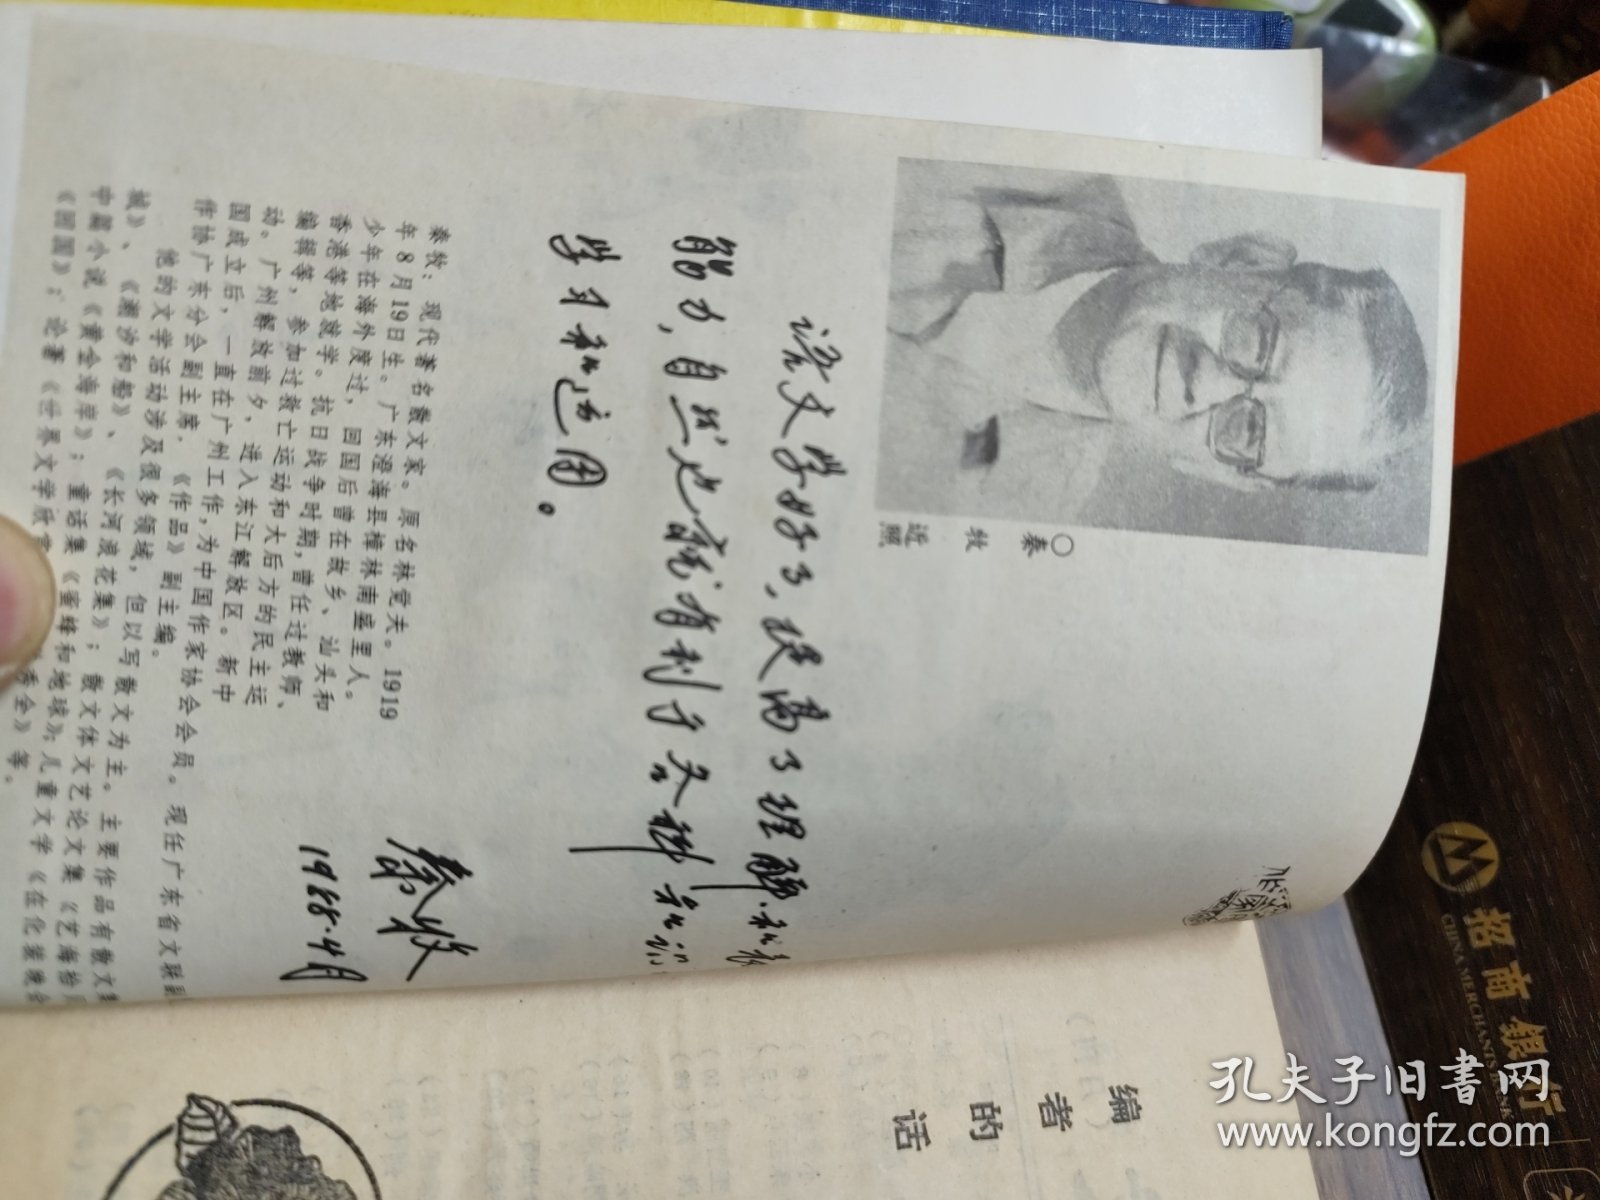 ○
秦牧近照
语文学好了，提高了理解、和表
能力，自然也就有利于各科知识
学习和运用。
秦牧
1988.4月
秦牧：现代著名散文家。原名林觉夫。1919
年8月19日生。广东澄海县樟林南盛里人。
少年在海外度过，回国后曾在故乡、汕头和
香港等地就学。抗日战争时期，曾任过教师、
编辑等，参加过救亡运动和大后方的民主运
动。广州解放前夕，进入东江解放区。新中
国成立后，一直在广州工作，为中国作家协会会员。现任广东省文联副
作协广东分会副主席，《作品》副主编。
他的文学活动涉及很多领域，但以写散文为主。主要作品有散文集
城》、《潮汐和船》、《长河浪花集》；散文体文艺论文集《艺海拾贝
中篇小说《黄金海岸》；童话集《蜜蜂和地球》；儿童文学《在化装晚会
《回国》；论著《世界文学欣赏 委全》等。
编者的话
招商银行
CHINA MERCHANTS BANK
孔夫子旧书网
www.kongfz.com